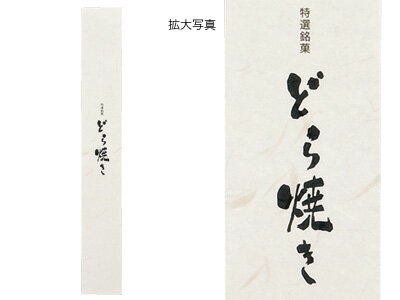 特選銘菓
どら焼き
拡大写真
特選銘菓
どら焼き